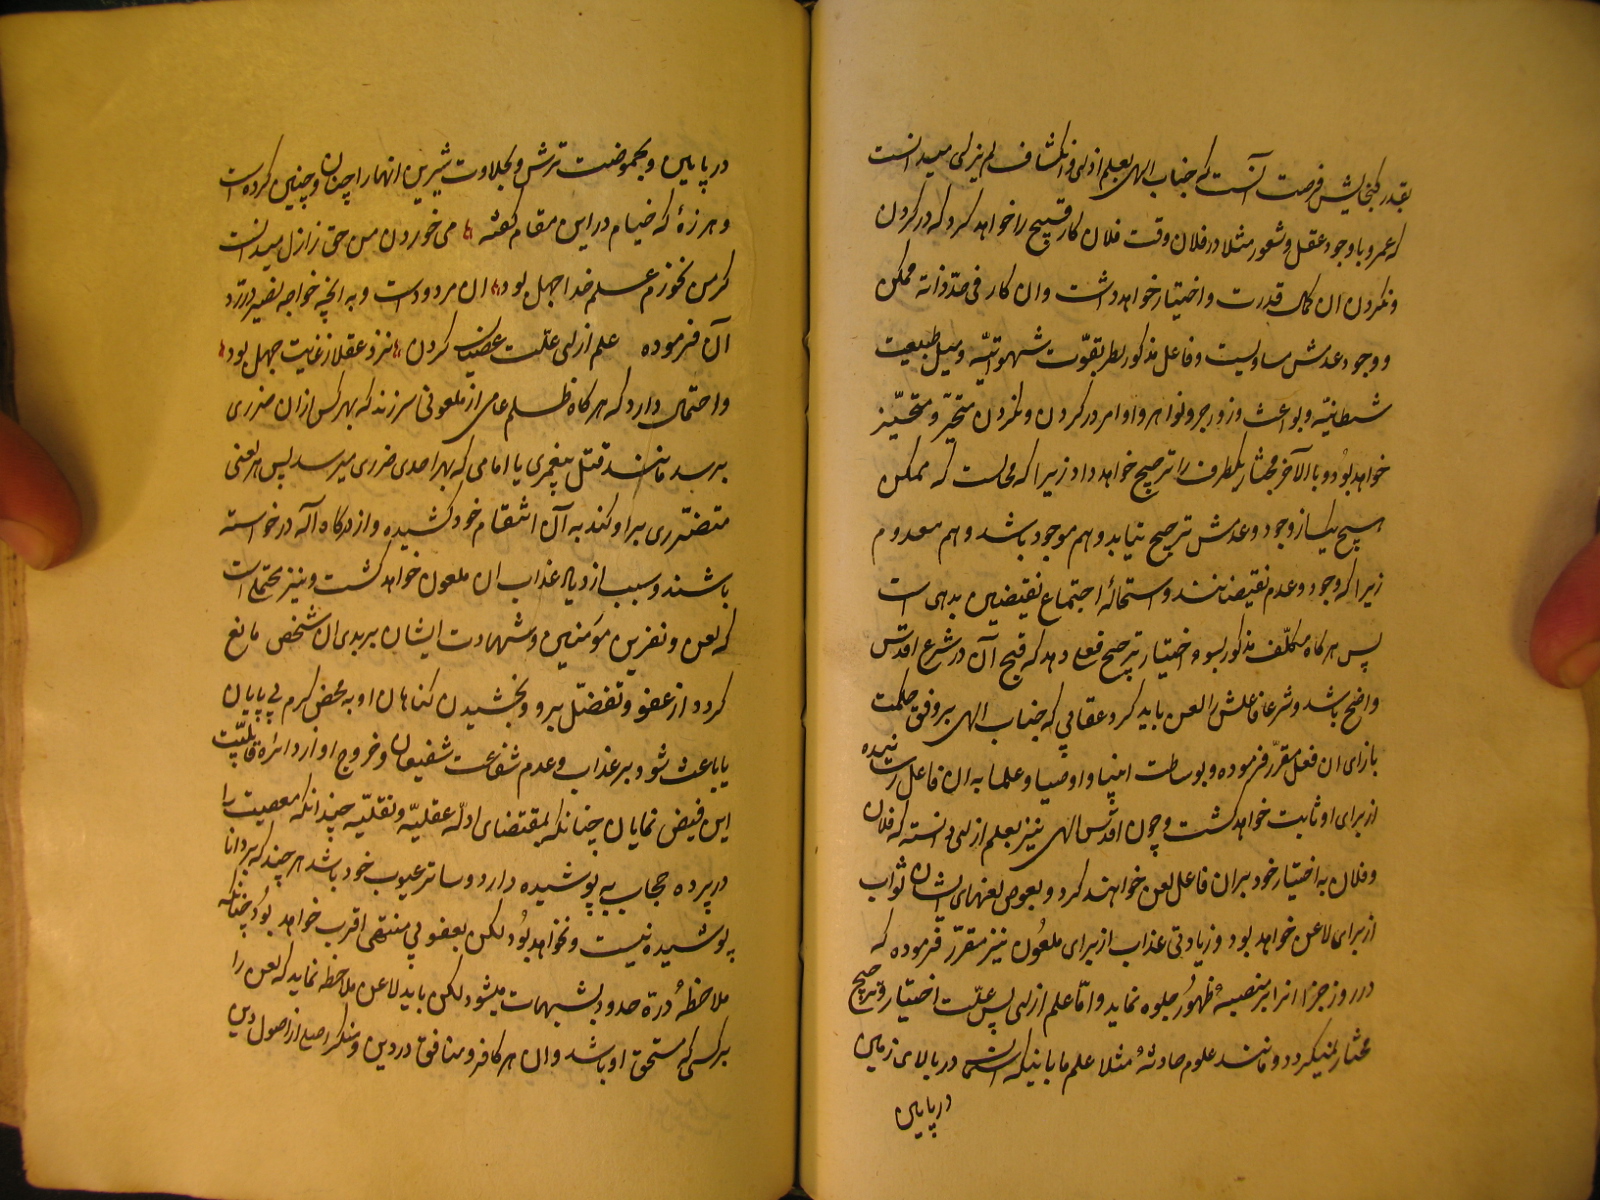 بقدر کنجایش فرصت آنست که جناب الهی بعلم ازلی و انکشاف لم یزلی میدانست
که عمرو با وجود عقل و شعور مثلا در فلان وقت فلان کار قبیح را خواهد کرد که در کردن
و نکردن ان کمال قدرت و اختیار خواهد داشت و ان کار فی حد ذاته ممکن
و وجود عدمش مساویست و فاعل مذکور بقوت شهوتیه و میل طبیعت
شیطانیه و بواعث و زواجر و نواهی و اوامر در کردن و نکردن متحیر و متخیر
خواهد بود و بالاخر مختار یکطرف را ترجیح خواهد داد زیرا که محالست که ممکن
هیچ یک از وجود و عدمش ترجیح نیابد و هم موجود باشد و هم معدوم
زیرا که وجود و عدم نقیضانند و استحالهٔ اجتماع نقیضین بدیهی است
پس هر کاه مکلف مذکور بسوء اختیار ترجیح فعلی دهد که قبح آن در شرع اقدس
واضح باشد و شرعا فاعلش را لعن باید کرد عقابی که جناب الهی بر وفق حکمت
بازای ان فعل مقرر فرموده و بوساطت انبیا و اوصیا و علما به ان فاعل رسانیده
از برای او ثابت خواهد کشت و چون اقدس الهی نیز بعلم ازلی دانسته که فلان
و فلان به اختیار خود بران فاعل لعن خواهند کرد و بعوض لعنهای ایشان ثواب
از برای لاعن خواهد بود و زیادتی عذاب از برای ملعون نیز مقرر فرموده که
در روز جزا انرا بر منصهٔ ظهور جلوه نماید و اما علم ازلی پس علت اختیار و ترجیح
مختار نمیکردد و مانند علوم حادثهٔ مثلا علم ما باینکه آسمان در بالای زمین
در پایین
در پایین و بحموضت ترش و بحلاوت شیرین انها را چنان و چنین کرده است
و هرزهٔ که خیام در این مقام کفته می خوردن من حق ز ازل میدانست
کر من نخورم علم خدا جهل بود ان مردود است و به انچه خواجه نصیر در رد
آن فرموده علم ازلی علت عصیان کردن نزد عقلا ز غایت جهل بود
و احتمال دارد که هر کاه ظلم عامی از ملعونی سر زند که بهر کس از ان ضرری
برسد مانند قتل پیغمبری یا امامی که بهر احدی ضرری میرسد پس هر لعنی
متضرری بر او کند به آن انتقام خود کشیده و از درکاه اله درخواسته
باشند و سبب ازدیاد عذاب ان ملعون خواهد کشت و نیز محتمل است
که لعن و نفرین مؤمنین و شهادت ایشان بر بدی ان شخص مانع
کردد از عفو و تفضل برو و بخشیدن کناهان او به محض کرم بی پایان
یا باعث شود بر عذاب و عدم شفاعت شفیعان و خروج او از دائره قابلیت
این فیض نمایان چنانکه بمقتضای ادله عقلیه و نقلیه چندانکه معصیت را
در پرده حجاب پوشیده دارد و ساتر عیوب خود باشد هر چند که بر دانا
پوشیده نیست و نخواهد بود لکن بعفو بی منتهی اقرب خواهد بود چنانکه
ملاحظهٔ درء حدود بشبهات میشود لکن باید لاعن ملاحظه نماید که لعن را
بر کسی که مستحق او باشد و ان هر کافر و منافق در دین و منکر اصلی از اصول دین